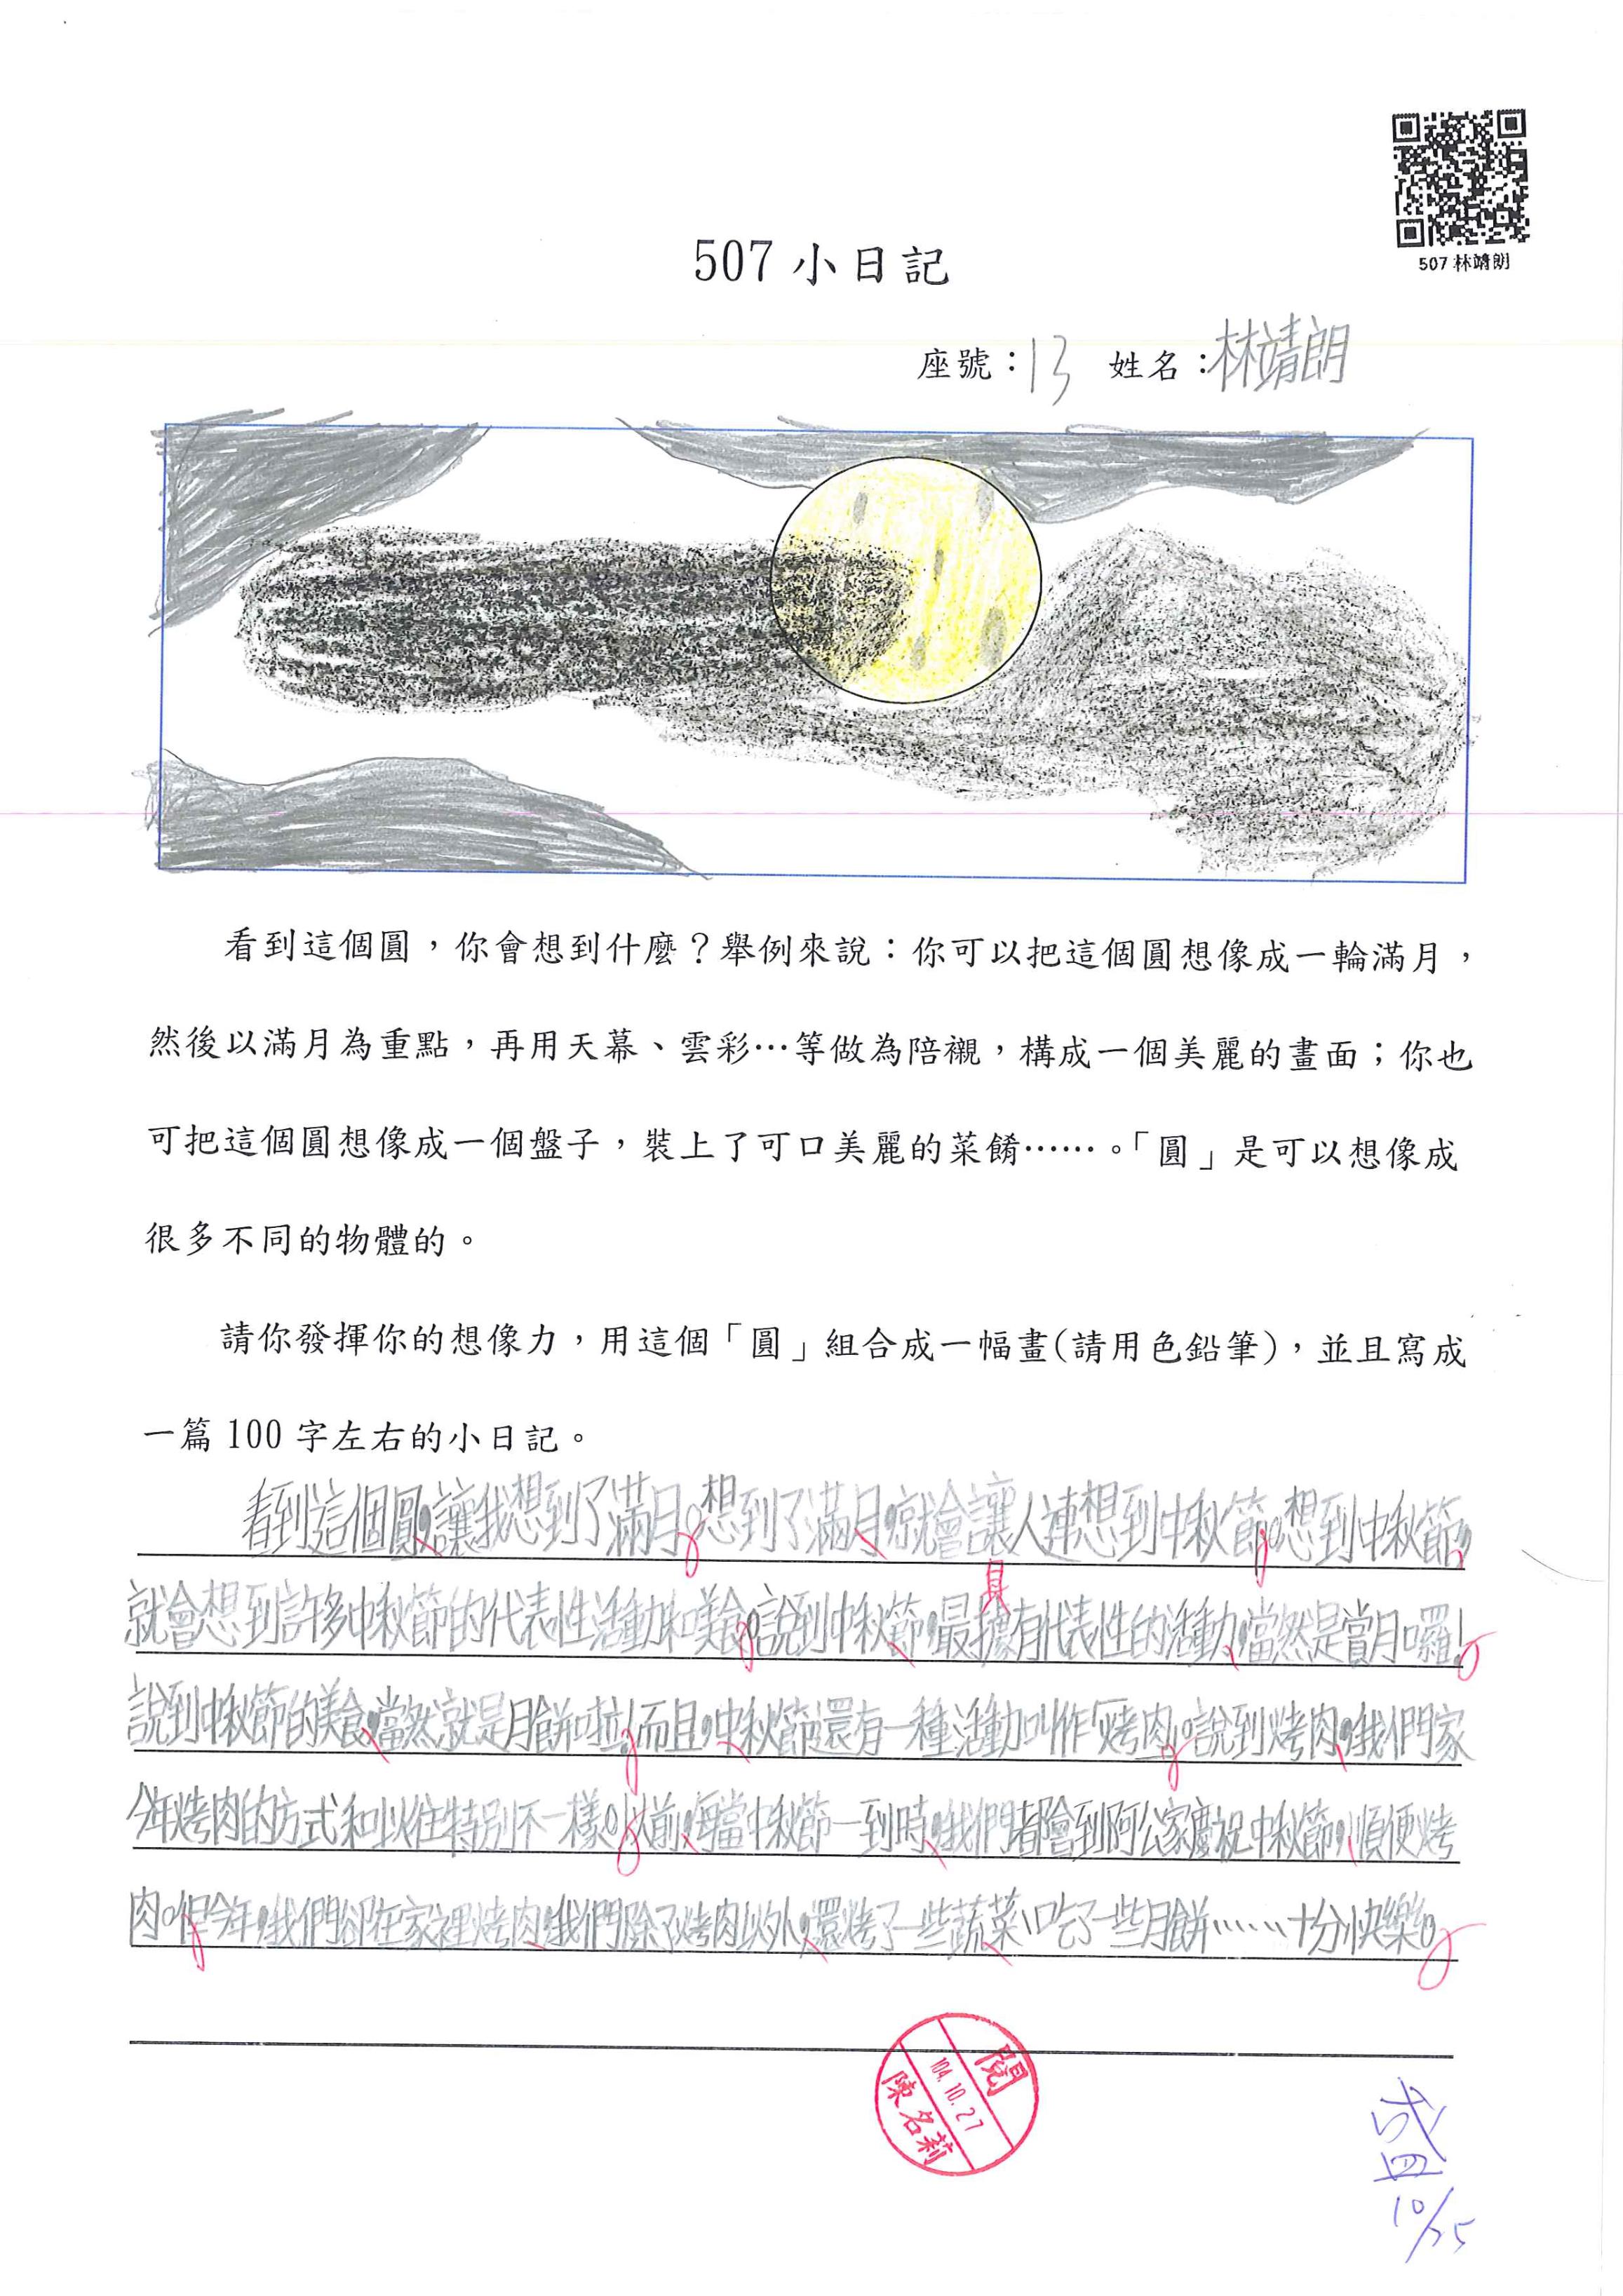 507 林靖朗
507 小日記
座號：13 姓名：林靖朗
看到這個圓，你會想到什麼？舉例來說：你可以把這個圓想像成一輪滿月，
然後以滿月為重點，再用天幕、雲彩…等做為陪襯，構成一個美麗的畫面；你也
可把這個圓想像成一個盤子，裝上了可口美麗的菜餚……。「圓」是可以想像成
很多不同的物體的。
請你發揮你的想像力，用這個「圓」組合成一幅畫(請用色鉛筆)，並且寫成
一篇 100 字左右的小日記。
看到這個圓，讓我想到了滿月。想到了滿月，就會讓人連想到中秋節。想到中秋節，
就會想到許多中秋節的代表性活動和美食。說到中秋節，最具有代表性的活動，當然是賞月囉！
說到中秋節的美食，當然就是月餅啦！而且，中秋節還有一種活動叫作「烤肉」。說到烤肉，我們家
今年烤肉的方式和以往特別不一樣。以前，每當中秋節一到時，我們都會到阿公家慶祝中秋節，順便烤
肉。但今年，我們卻在家裡烤肉，我們除了烤肉以外，還烤了一些蔬菜、吃了一些月餅……十分快樂。
閱
104.10.27
陳名莉
盛
10/25